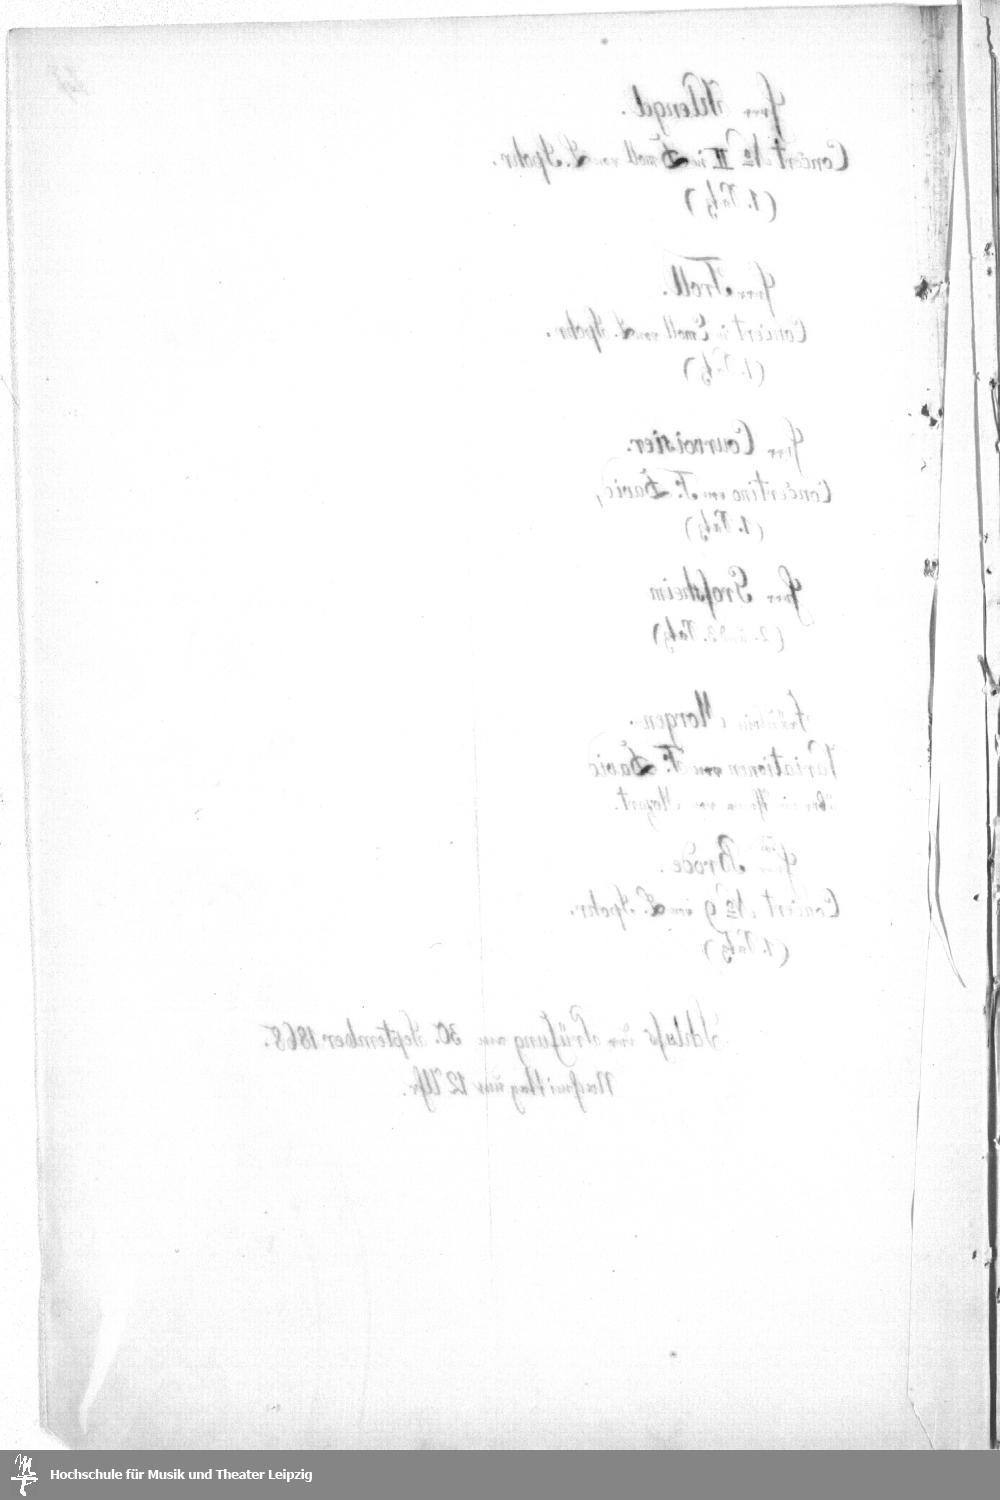 Herr Klengel.
Concert No II in D moll von L. Spohr.
(1. Satz)
Herr Troll.
Concert in E moll von L. Spohr.
(1. Satz)
Herr Courvoisier.
Concertino von F. David,
(1. Satz)
Herr Grossheim
(2. und 3. Satz)
Fräulein Morgen.
Variationen von F. David
über ein Thema von Mozart.
Herr Brode.
Concert No 9 von L. Spohr.
(1. Satz)
Schluss der Prüfung am 30. September 1868.
Nachmittag um 12 Uhr.
Hochschule für Musik und Theater Leipzig